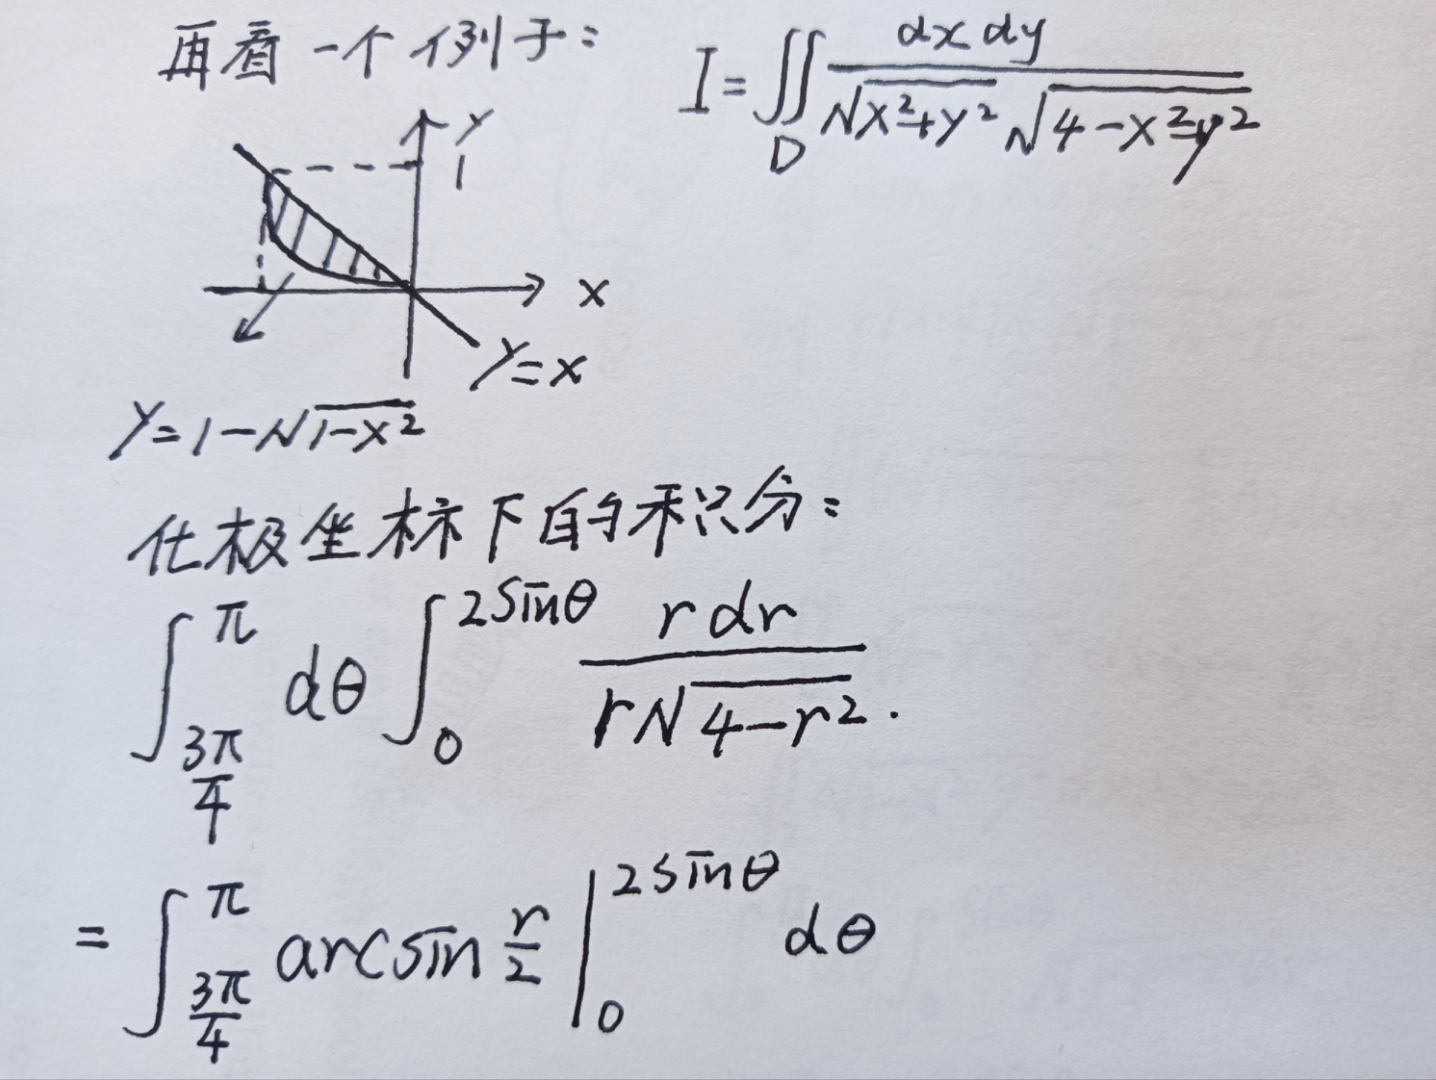 再看一个例子: I=∬_D dxdy/(√(x²+y²) √(4-x²-y²))
y
1
x
y=x
y=1-√(1-x²)
化极坐标下的积分:
∫_{3π/4}^{π} dθ ∫_0^{2sinθ} rdr/(r√(4-r²)).
=∫_{3π/4}^{π} arcsin r/2 |_0^{2sinθ} dθ